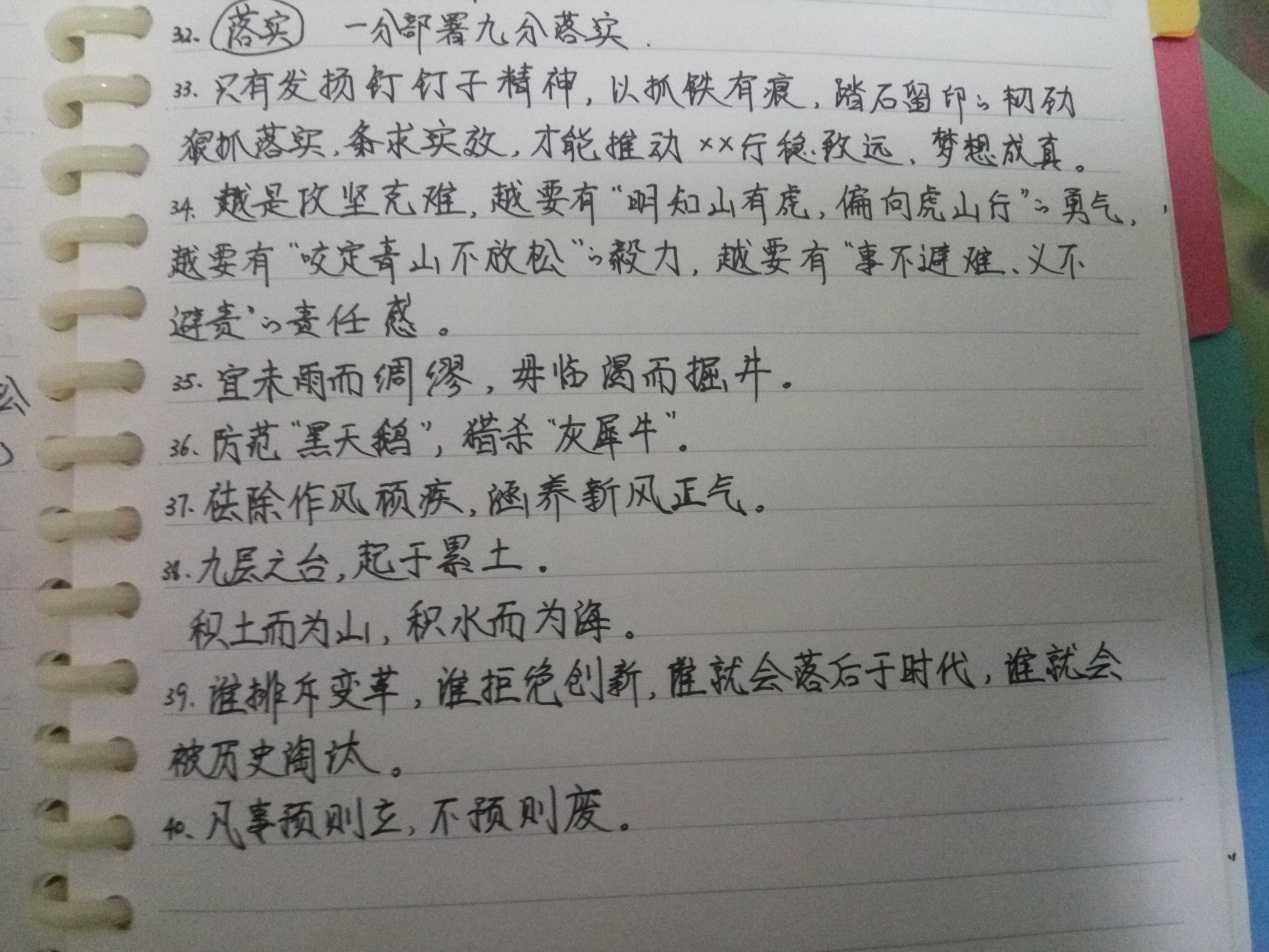 32. 落实 一分部署九分落实.
33. 只有发扬钉钉子精神,以抓铁有痕,踏石留印的韧劲
狠抓落实,务求实效,才能推动××行稳致远、梦想成真。
34. 越是攻坚克难,越要有“明知山有虎,偏向虎山行”的勇气,
越要有“咬定青山不放松”的毅力,越要有“事不避难、义不
避责”的责任感。
35. 宜未雨而绸缪,毋临渴而掘井。
36. 防范“黑天鹅”,猎杀“灰犀牛”。
37. 祛除作风顽疾,涵养新风正气。
38. 九层之台,起于累土。
积土而为山,积水而为海。
39. 谁排斥变革,谁拒绝创新,谁就会落后于时代,谁就会
被历史淘汰。
40. 凡事预则立,不预则废。